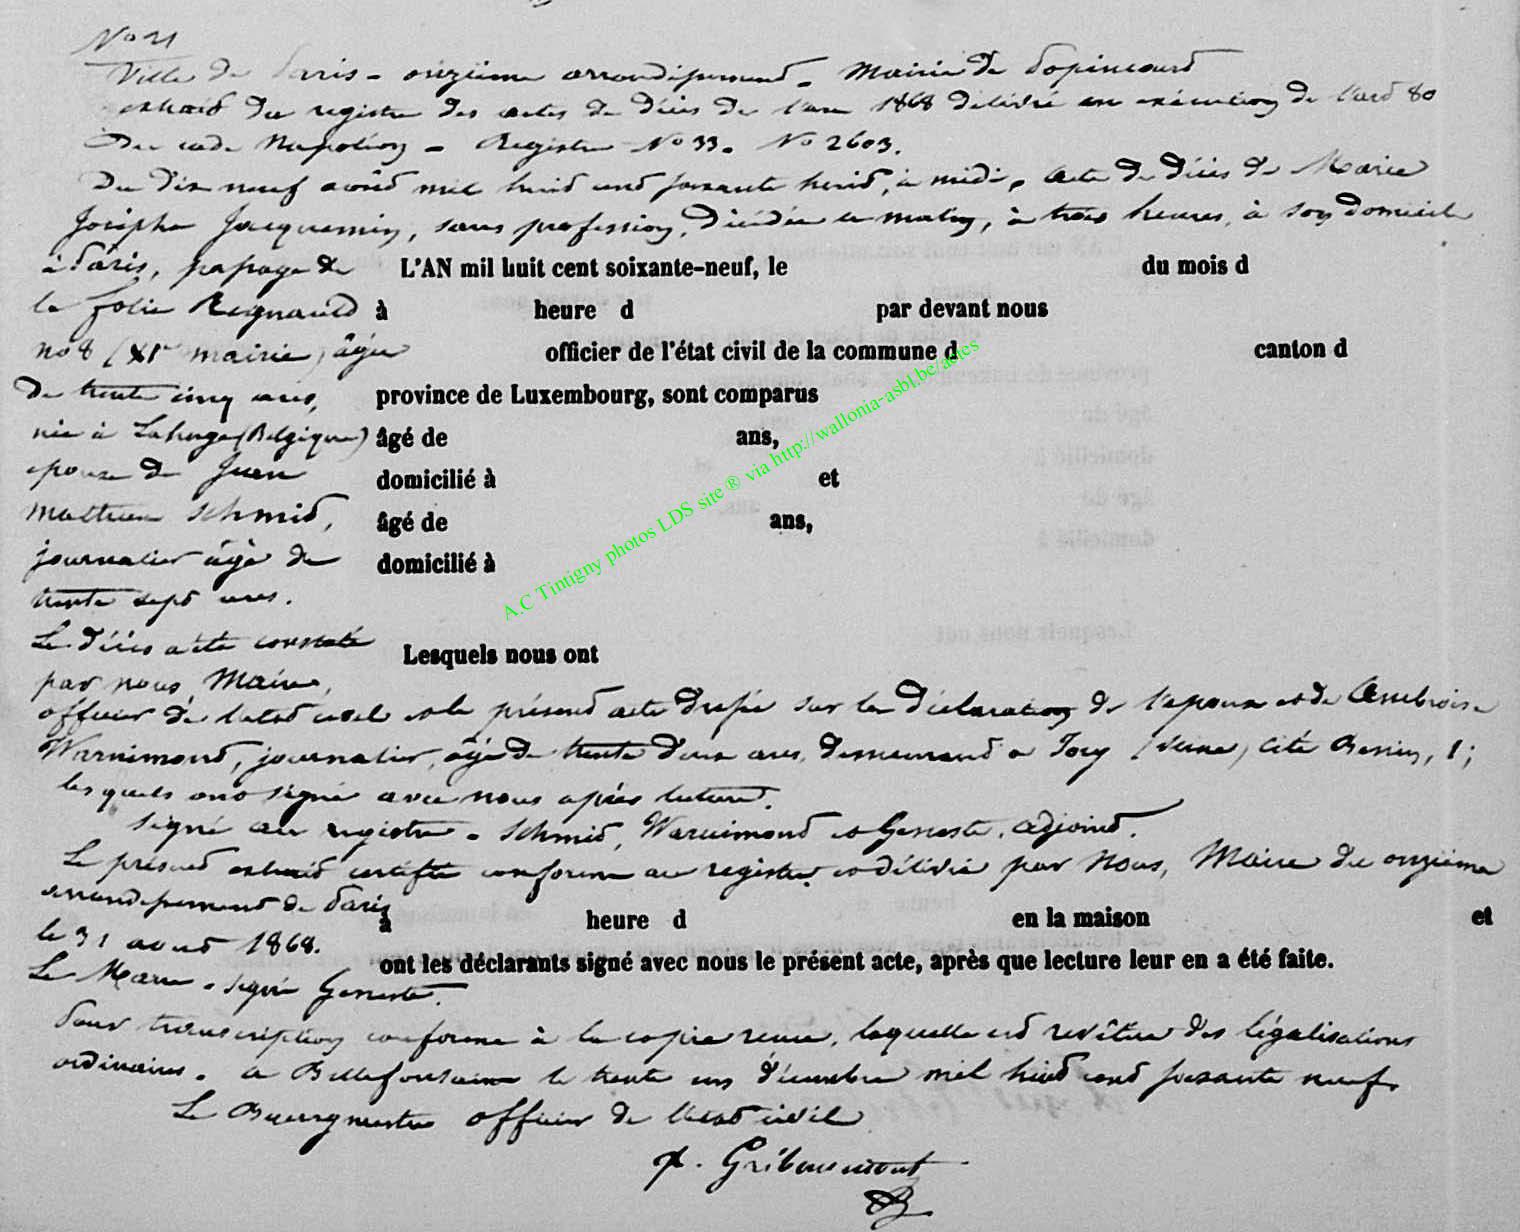 No 21
Ville de Paris – onzième arrondissement – Mairie de Popincourt
extrait du registre des actes de décès de l'an 1868 délivré en exécution de l'art 80
Du code Napoléon – Registre No 33. No 2603.
Du dix neuf août mil huit cent soixante huit, à midi, acte de décès de Marie
Josèphe Jacquemin, sans profession, décédée ce matin, à trois heures, à son domicile
à Paris, passage de
L'AN mil huit cent soixante-neuf, le du mois d
la folie Regnauld
à heure d par devant nous
no 8 (XIe mairie) âgée
officier de l'état civil de la commune d canton d
de trente cinq ans,
province de Luxembourg, sont comparus
née à Lahage (Belgique)
âgé de ans,
épouse de Jean
domicilié à et
Mathieu Schmid,
âgé de ans,
journalier âgé de
domicilié à
trente sept ans.
Le décès a été constaté
Lesquels nous ont
par nous, Maire,
officier de l'état civil et le présent acte dressé sur la déclaration de l'époux et de Ambroise
Warnimont, journalier, âgé de trente deux ans, demeurant à Ivry (Seine) cité 1;
lesquels ont signé avec nous après lecture.
signé au registre – Schmid, Warnimont et Geneste, adjoint.
Le présent extrait certifié conforme au registre et délivré par Nous, Maire du onzième
arrondissement de Paris
à heure d en la maison et
le 31 août 1868.
ont les déclarants signé avec nous le présent acte, après que lecture leur en a été faite.
Le Maire – signé Geneste.
Pour transcription conforme à la copie reçue, laquelle est revêtue des légalisations
ordinaires. à Bellefontaine le trente un décembre mil huit cent soixante neuf
Le Bourgmestre officier de l'état civil
Gribaumont
A.C Tintigny photos LDS site ® via http://wallonia-asbl.be/actes